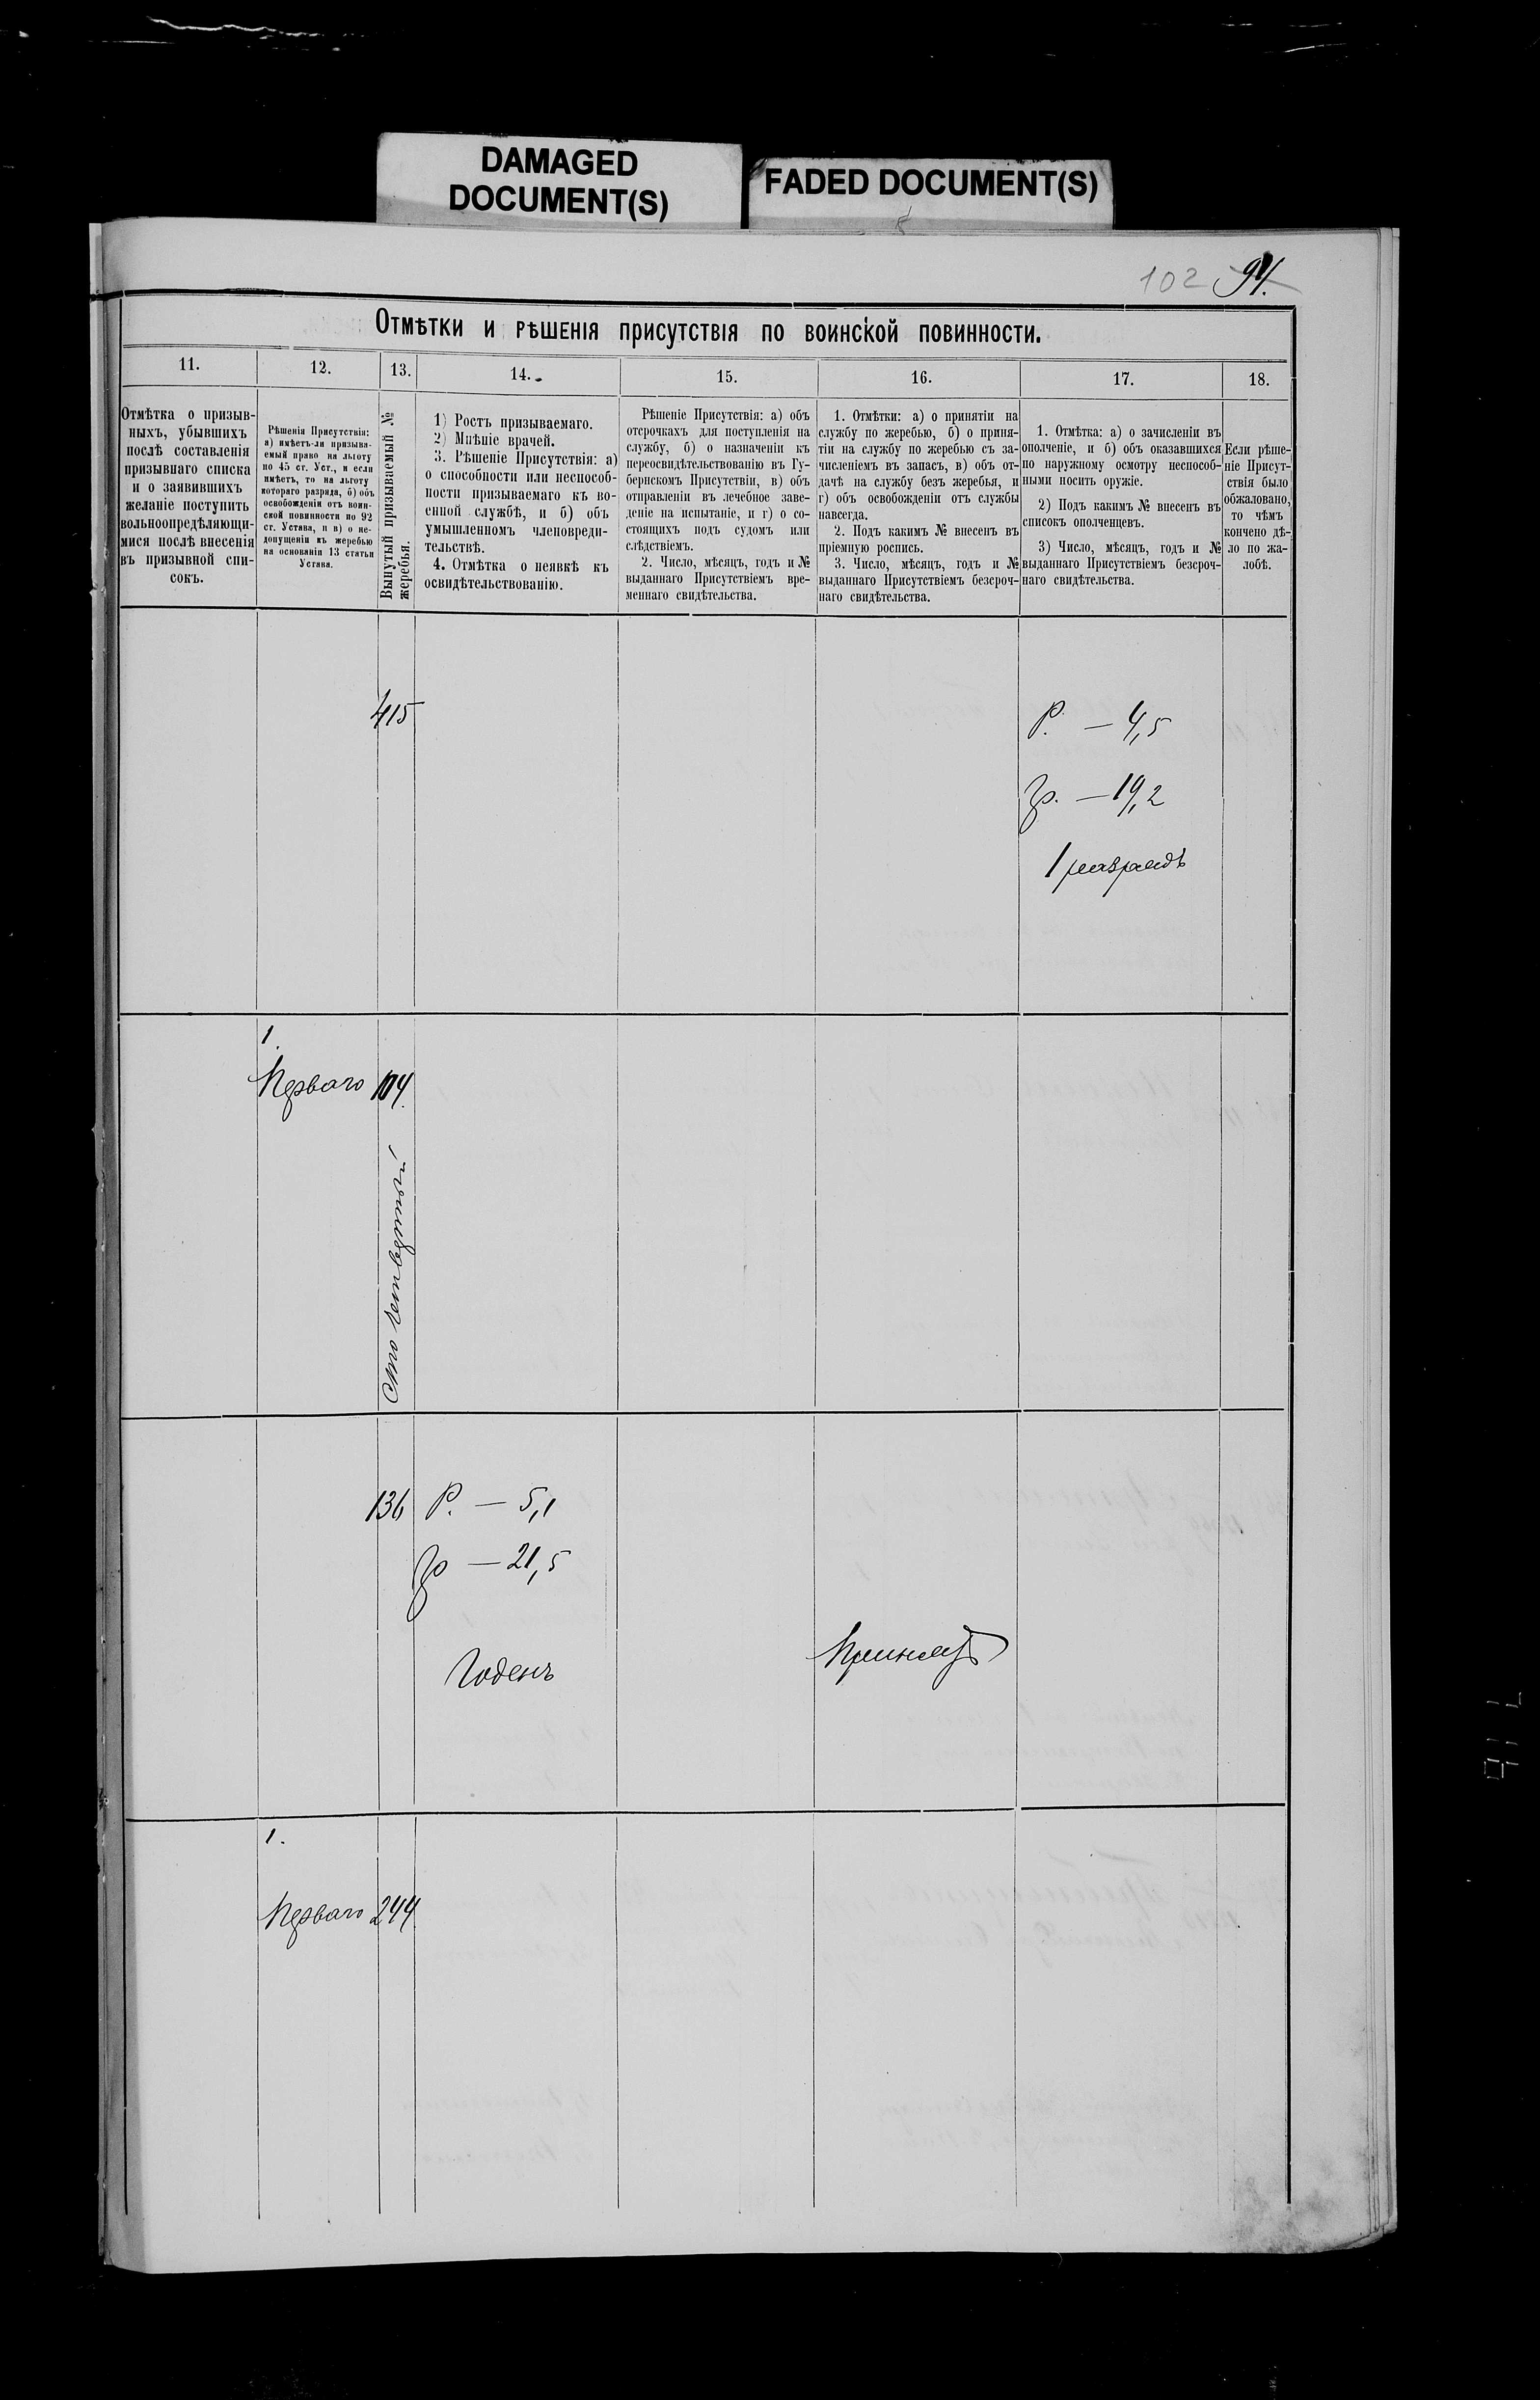 DAMAGED
DOCUMENT(S)
FADED DOCUMENT(S)
102 94.
Отмѣтки и рѣшенія присутствія по воинской повинности.
11.
12.
13.
14.
15.
16.
17.
18.
Отмѣтка о призыв-
ныхъ, убывшихъ
послѣ составленія
призывнаго списка
и о заявившихъ
желаніе поступить
вольноопредѣляющи-
мися послѣ внесенія
въ призывной спи-
сокъ.
Рѣшенія Присутствія:
а) имѣетъ-ли призыва-
емый право на льготу
по 45 ст. Уст., и если
имѣетъ, то на льготу
котораго разряда, б) объ
освобожденіи отъ воин-
ской повинности по 92
ст. Устава, и в) о не-
допущеніи къ жеребью
на основаніи 13 статьи
Устава.
Вынутый призываемый №
жеребья.
1) Ростъ призываемаго.
2) Мнѣніе врачей.
3. Рѣшеніе Присутствія: а)
о способности или неспособ-
ности призываемаго къ во-
енной службѣ, и б) объ
умышленномъ членовреди-
тельствѣ.
4. Отмѣтка о неявкѣ къ
освидѣтельствованію.
Рѣшеніе Присутствія: а) объ
отсрочкахъ для поступленія на
службу, б) о назначеніи къ
переосвидѣтельствованію въ Гу-
бернскомъ Присутствіи, в) объ
отправленіи въ лечебное заве-
деніе на испытаніе, и г) о со-
стоящихъ подъ судомъ или
слѣдствіемъ.
2. Число, мѣсяцъ, годъ и №
выданнаго Присутствіемъ вре-
меннаго свидѣтельства.
1. Отмѣтки: а) о принятіи на
службу по жеребью, б) о приня-
тіи на службу по жеребью съ за-
численіемъ въ запасъ, в) объ от-
дачѣ на службу безъ жеребья, и
г) объ освобожденіи отъ службы
навсегда.
2. Подъ какимъ № внесенъ въ
пріемную роспись.
3. Число, мѣсяцъ, годъ и №
выданнаго Присутствіемъ безсроч-
наго свидѣтельства.
1. Отмѣтка: а) о зачисленіи въ
ополченіе, и б) объ оказавшихся
по наружному осмотру неспособ-
ными носить оружіе.
2) Подъ какимъ № внесенъ въ
списокъ ополченцевъ.
3) Число, мѣсяцъ, годъ и №
выданнаго Присутствіемъ безсроч-
наго свидѣтельства.
Если рѣше-
ніе Присут-
ствія было
обжаловано,
то чѣмъ
кончено дѣ-
ло по жа-
лобѣ.
415
Р. — 4,5
Гр. — 19,2
1 разрядъ
1.
Перваго 104.
Сто четвертый
136
Р. — 5,1
Гр — 21,5
Годенъ
Принятъ
1.
Перваго 244